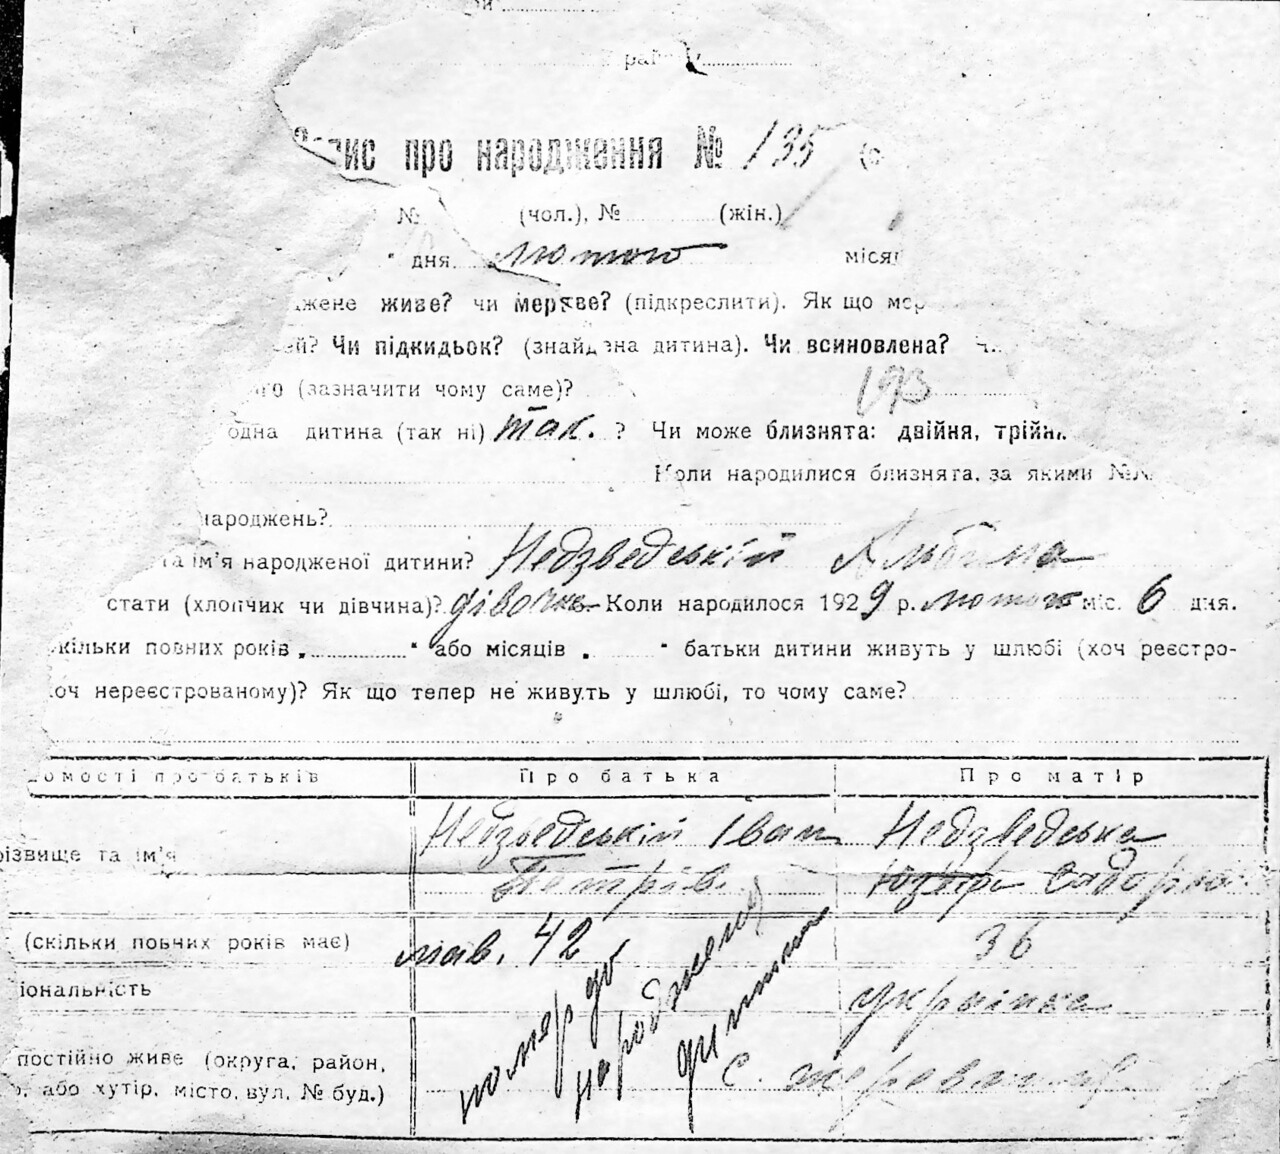 район
Запис про народження № 135
№ (чол.), № (жін.)
" дня лютого
жене живе? чи мертве? (підкреслити). Як що
Чи підкидьок? (знайдена дитина). Чи всиновлена?
(зазначити чому саме)? 193
одна дитина (так ні) так. ? Чи може близнята: двійня, трійн
Коли народилися близнята, за якими №№
народжень?
та ім'я народженої дитини? Недзведський Альбина
стати (хлопчик чи дівчина)? дівочка Коли народилося 1929 р. лютого міс. 6 дня.
кільки повних років „ " або місяців „ " батьки дитини живуть у шлюбі (хоч реєстро-
оч нереєстрованому)? Як що тепер не живуть у шлюбі, то чому саме?
домості про батьків Про батька Про матір
різвище та ім'я Недзведський Іван Недзведська
Петрів. Сидорка
(скільки повних років має) мав. 42 36
іональність українка
помер до народження дитини
постійно живе (округа, район,
або хутір, місто, вул. № буд.) с.